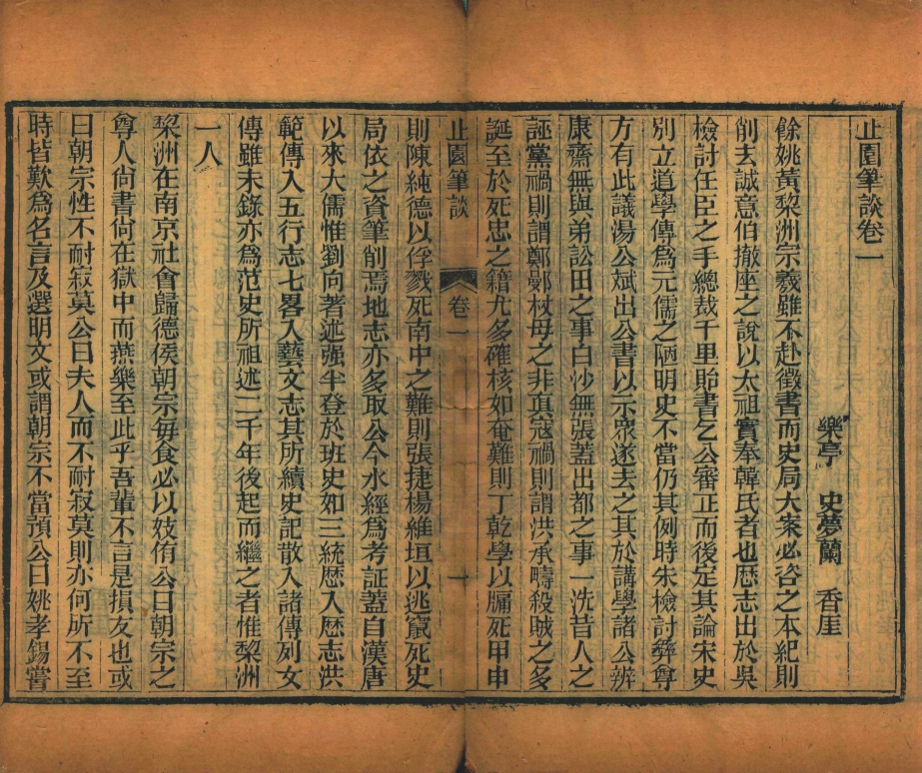 止園筆談卷一
樂亭 史夢蘭 香厓
餘姚黃棃洲宗羲雖不赴徵書而史局大案必咨之本紀則
削去誠意伯撤座之說以太祖實奉韓氏者也歷志出於吳
檢討任臣之手總裁千里貽書乞公審正而後定其論宋史
別立道學傳爲元儒之陋明史不當仍其例時朱檢討彝尊
方有此議湯公斌出公書以示衆遂去之其於講學諸公辨
康齋無與弟訟田之事白沙無張蓋出都之事一洗昔人之
誣黨禍則謂鄭鄤杖母之非真寇禍則謂洪承疇殺賊之多
誕至於死忠之籍尤多確核如奄難則丁乾學以牖死甲申
止園筆談 卷一 一
則陳純德以俘戮死南中之難則張捷楊維垣以逃竄死史
局依之資筆削焉地志亦多取公今水經爲考証蓋自漢唐
以來大儒惟劉向著述强半登於班史如三統歷入歷志洪
範傳入五行志七畧入藝文志其所續史記散入諸傳列女
傳雖未錄亦爲范史所祖述二千年後起而繼之者惟棃洲
一人
棃洲在南京社會歸德侯朝宗每食必以妓侑公曰朝宗之
尊人尙書尙在獄中而燕樂至此乎吾輩不言是損友也或
曰朝宗性不耐寂莫公曰夫人而不耐寂莫則亦何所不至
時皆歎爲名言及選明文或謂朝宗不當預公曰姚孝錫嘗